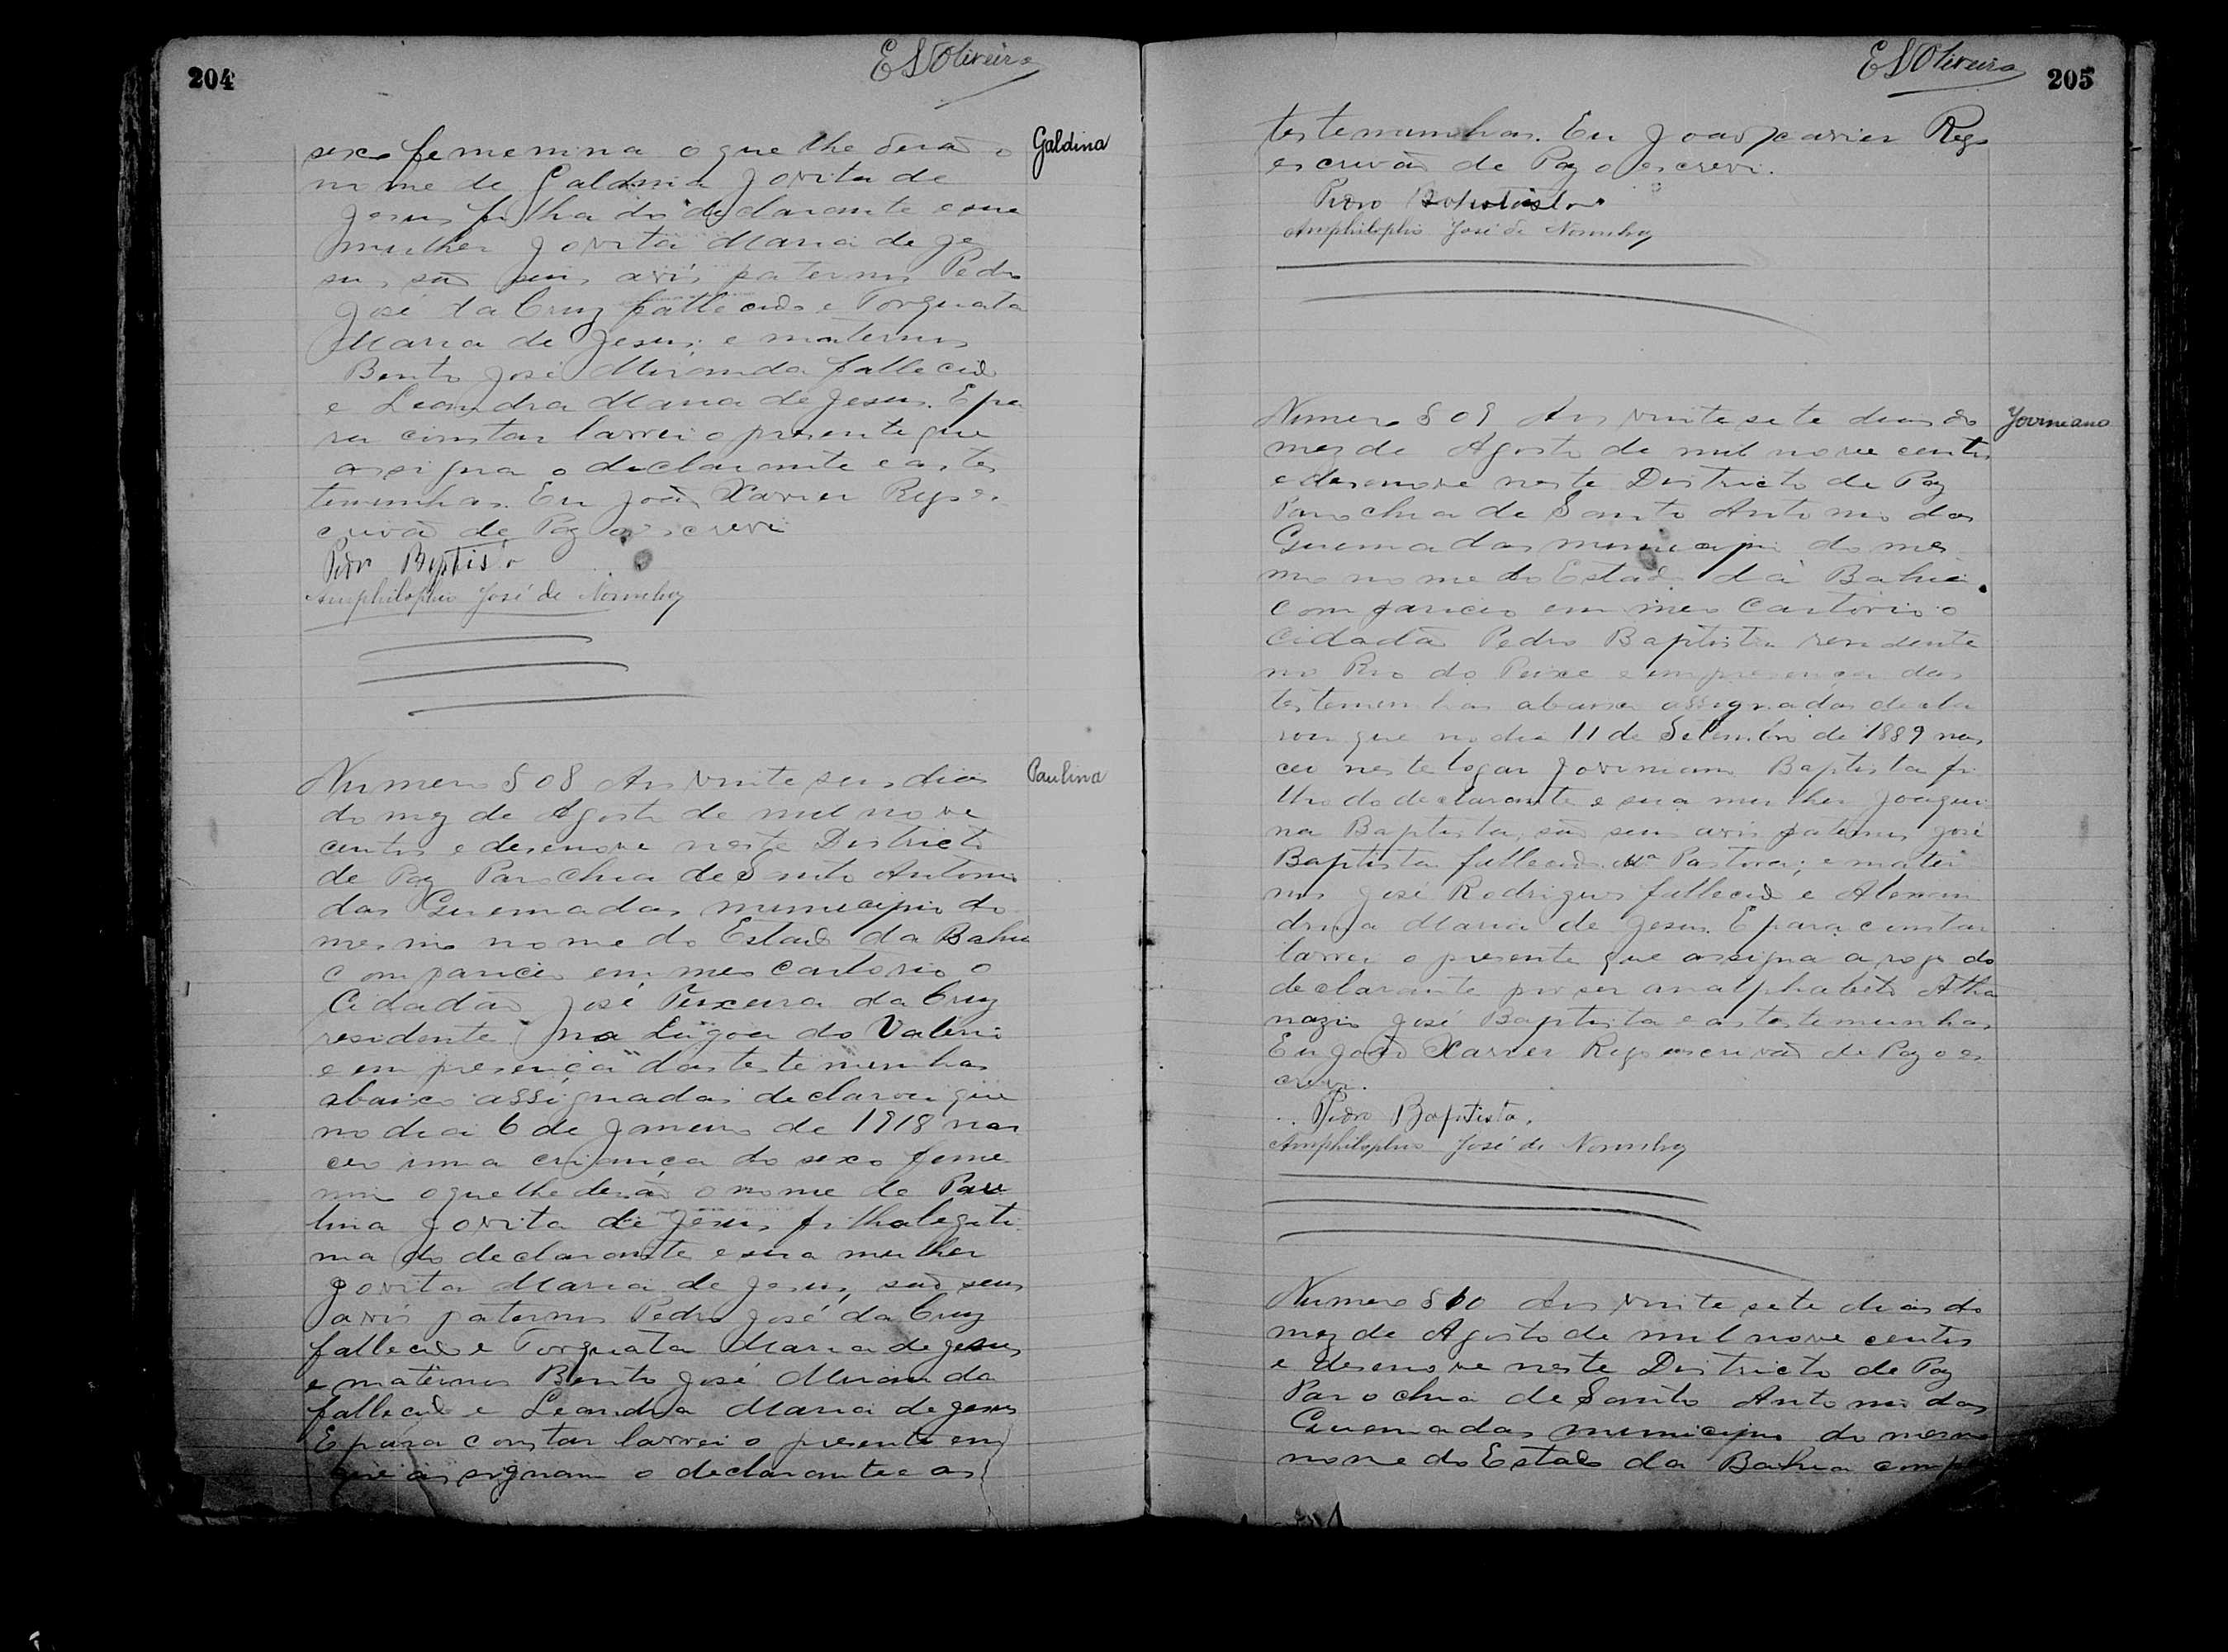 204
E S Oliveira
Galdina
sexo femenina o que lhe derão o
nome de Galdina Jovita de
Jesus filha do declarante e sua
mulher Jovita Maria de Je
sus, são seus avós paternos Pedro
José da Cruz fallecido e Torquata
Maria de Jesus; e maternos
Bento José Miranda fallecido
e Leandra Maria de Jesus. E pa
ra constar lavrei o presente que
assigna o declarante e as tes
temunhas. Eu João Xavier Rego es
crivão de Paz o escrevi
Pedro Baptista
Amphilophio José de Noronha
Paulina
Numero 808 Aos vinte seis dias
do mez de Agosto de mil nove
centos e desenove neste Districto
de Paz Parochia de Santo Antonio
das Queimadas municipio do
mesmo nome do Estado da Bahia
compareceo em meo cartorio o
Cidadão José Teixeira da Cruz
residente na Lagoa do Valerio
e em presença das testemunhas
abaixo assignadas declarou que
no dia 6 de Janeiro de 1918 nas
ceo uma criança do sexo feme
nino o que lhe derão o nome de Pau
lina Jovita de Jesus, filha legiti
ma do declarante e sua mulher
Jovita Maria de Jesus, são seus
avós paternos Pedro José da Cruz
fallecido e Torquata Maria de Jesus
e maternos Bento José Miranda
fallecido e Leandra Maria de Jesus
E para constar lavrei o presente em
que assignam o declarante e as
E S Oliveira
205
testemunhas. Eu João Xavier Rego
escrivão de Paz o escrevi.
Pedro Baptista
Amphilophio José de Noronha
Numero 809 Aos vinte sete dias do
Joviniano
mez de Agosto de mil nove centos
e desenove neste Districto de Paz
Parochia de Santo Antonio das
Queimadas municipio do mes
mo nome do Estado da Bahia.
compareceo em meo Cartorio o
Cidadão Pedro Baptista residente
no Rio do Peixe e em presença das
testemunhas abaixo assignadas decla
rou que no dia 11 de Setembro de 1889 nas
ceo neste logar Joviniano Baptista fi
lho do declarante e sua mulher Joaqui
na Baptista, são seus avós paternos José
Baptista fallecido Mª Pastora; e mater
nos José Rodrigues fallecido e Alexan
drina Maria de Jesus. E para constar
lavrei o presente que assigna a rogo do
declarante por ser analphabeto Atha
nazio José Baptista e as testemunhas
Eu João Xavier Rego escrivão de Paz o es
crevi.
Pedro Baptista.
Amphilophio José de Noronha
Numero 810 Aos vinte sete dias do
mez de Agosto de mil nove centos
e desenove neste Districto de Paz
Parochia de Santo Antonio das
Queimadas municipio do mesmo
nome do Estado da Bahia comp